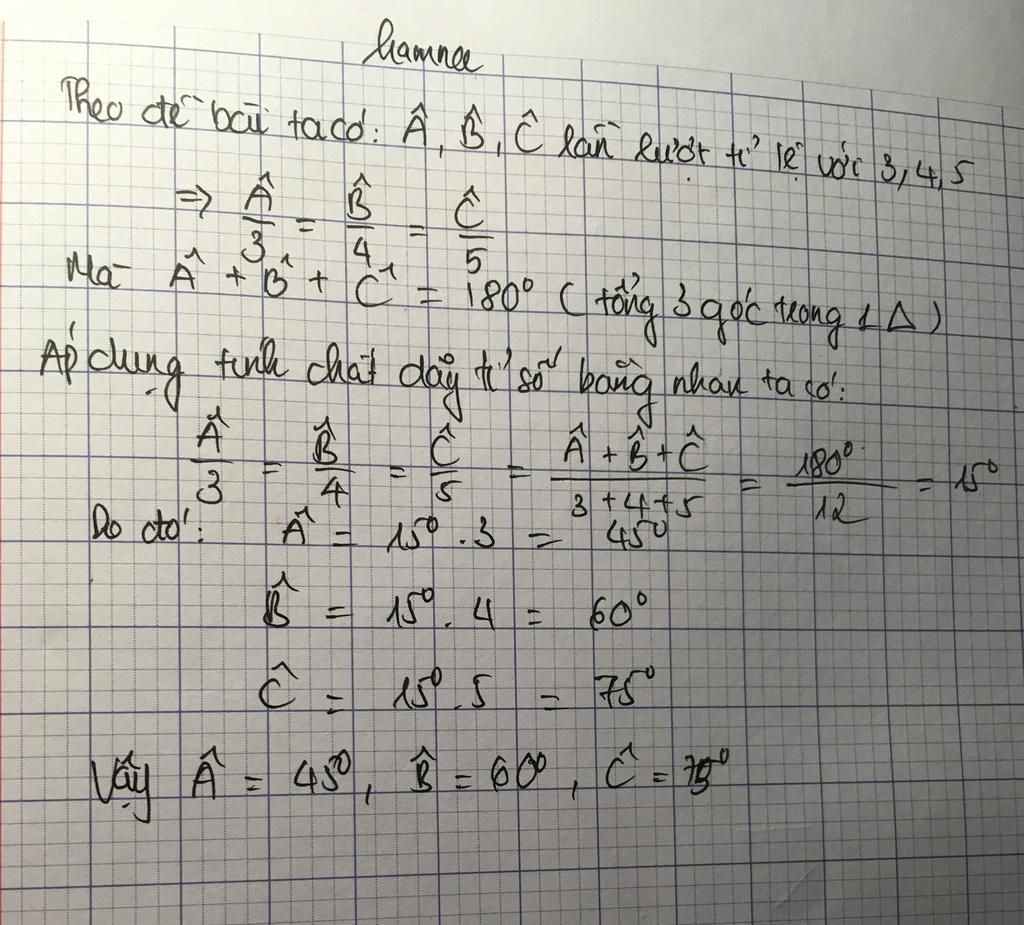 hamnee
Theo đề bài ta có: Â, B̂, Ĉ lần lượt tỉ lệ với 3, 4, 5
=> Â/3 = B̂/4 = Ĉ/5
Mà Â + B̂ + Ĉ = 180° ( tổng 3 góc trong 1 Δ )
Áp dụng tính chất dãy tỉ số bằng nhau ta có:
Â/3 = B̂/4 = Ĉ/5 = (Â + B̂ + Ĉ)/(3 + 4 + 5) = 180°/12 = 15°
Do đó: Â = 15° . 3 = 45°
B̂ = 15° . 4 = 60°
Ĉ = 15° . 5 = 75°
Vậy Â = 45°, B̂ = 60°, Ĉ = 75°